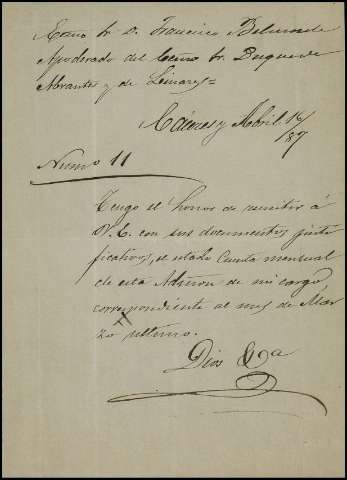 Excmo Sr. D. Francisco Belmonte
Apoderado del Excmo Sr. Duque de
Abrantes y de Linares =
Cáceres y Abril 14/87
Numo 11
Tengo el honor de remitir á
V. E. con sus documentos justi
ficativos, el estado Cuenta mensual
de esta Admon de mi cargo,
correspondiente al mes de Mar
zo ultimo.
Dios &a